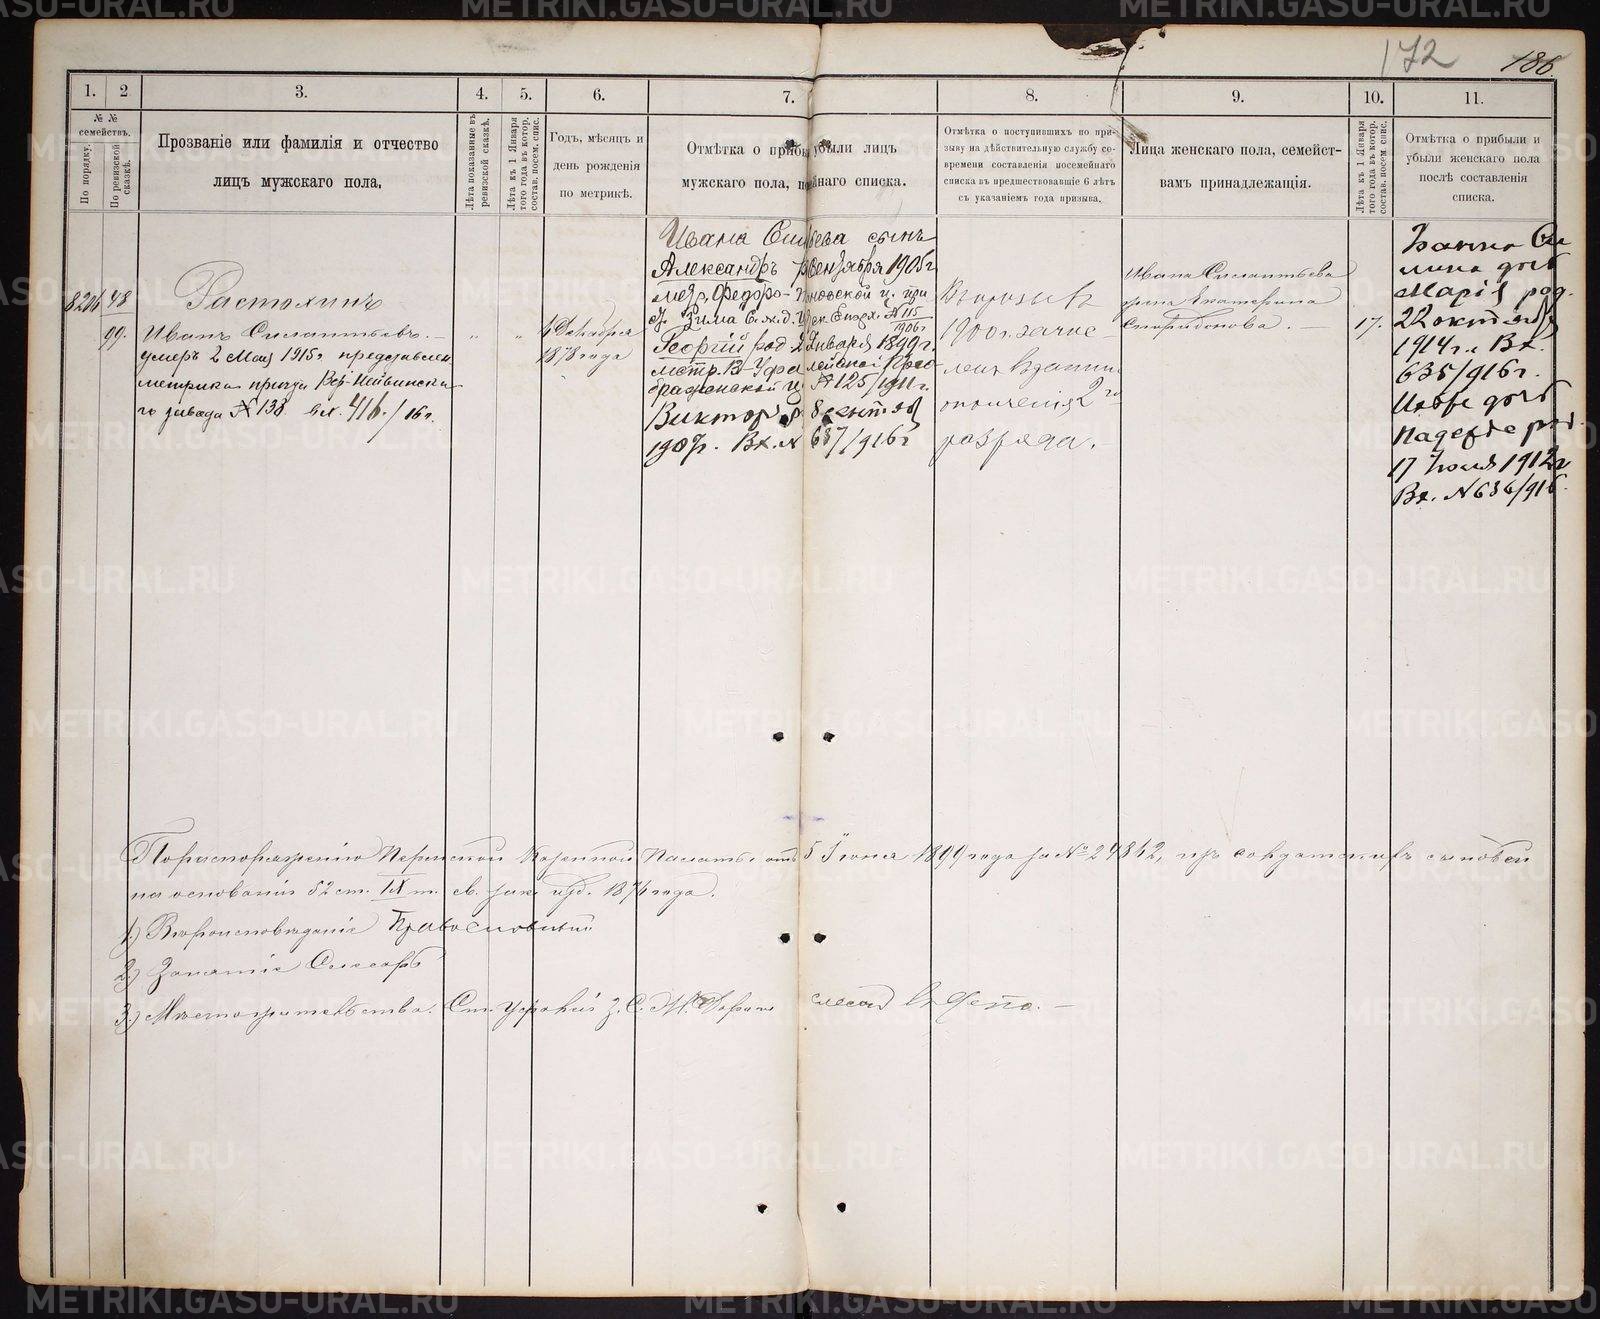 172
186.
1.
2
3.
4.
5.
6.
7.
8.
9.
10.
11.
№ №
семействъ.
По порядку.
По ревизской сказкѣ.
Прозваніе или фамилія и отчество
лицъ мужскаго пола,
Лѣта показанные въ
ревизской сказкѣ.
Лѣта къ 1 Января
того года въ котор.
состав. посем. спис.
Годъ, мѣсяцъ и
день рожденія
по метрикѣ.
Отмѣтка о прибы убыли лицъ
мужскаго пола, по ейнаго списка.
Отмѣтка о поступившихъ по при-
зыву на дѣйствительную службу со-
времени составленія посемейнаго
списка въ предшествовавшіе 6 лѣтъ
съ указаніемъ года призыва.
Лица женскаго пола, семейст-
вамъ принадлежащія.
Лѣта къ 1 Января
того года въ котор.
состав. посем. спис.
Отмѣтка о прибыли и
убыли женскаго пола
послѣ составленія
списка.
48
99.
Растохинъ
Иванъ Силантьевъ. —
умеръ 2 Мая 1915г представлена
метрика причта Вер-Нейвинска
го завода № 138 вх. 416./16г.
"
"
4 Декабря
1878 года
Ивана сынъ
Александръ 1905г
метр. Федоро-
ст. Зима № 115
1906г
Георгій род. Января 1899г.
метр. В-Уфа
№ 125/1911г.
Викторъ 8 сентяб
1907г. Вх. № 637/916г
въ
1900г. зачис-
ленъ въ ратники
ополченія 2го
разряда.
Ивана Силантьева
жена Екатерина
Спиридонова.
17.
дочь
Марія род.
22 октяб
1914г. Вх.
635/916г.
дочь
Надежда род.
17 1912г
Вх. № 636/916.
По распоряженію Пермской Казенной Палаты отъ 5 Іюня 1899 года за № 24862, изъ солдатскихъ сыновей
на основаніи 52 ст. IX т. св. зак. изд. 1876 года.
1.) Вѣроисповѣданіе Православный
2.) Занятіе Слесарь
3.) Мѣстожительство. Ст. З. С. Ж. Дороги слесарь въ Депо. —
METRIKI.GASO-URAL.RU